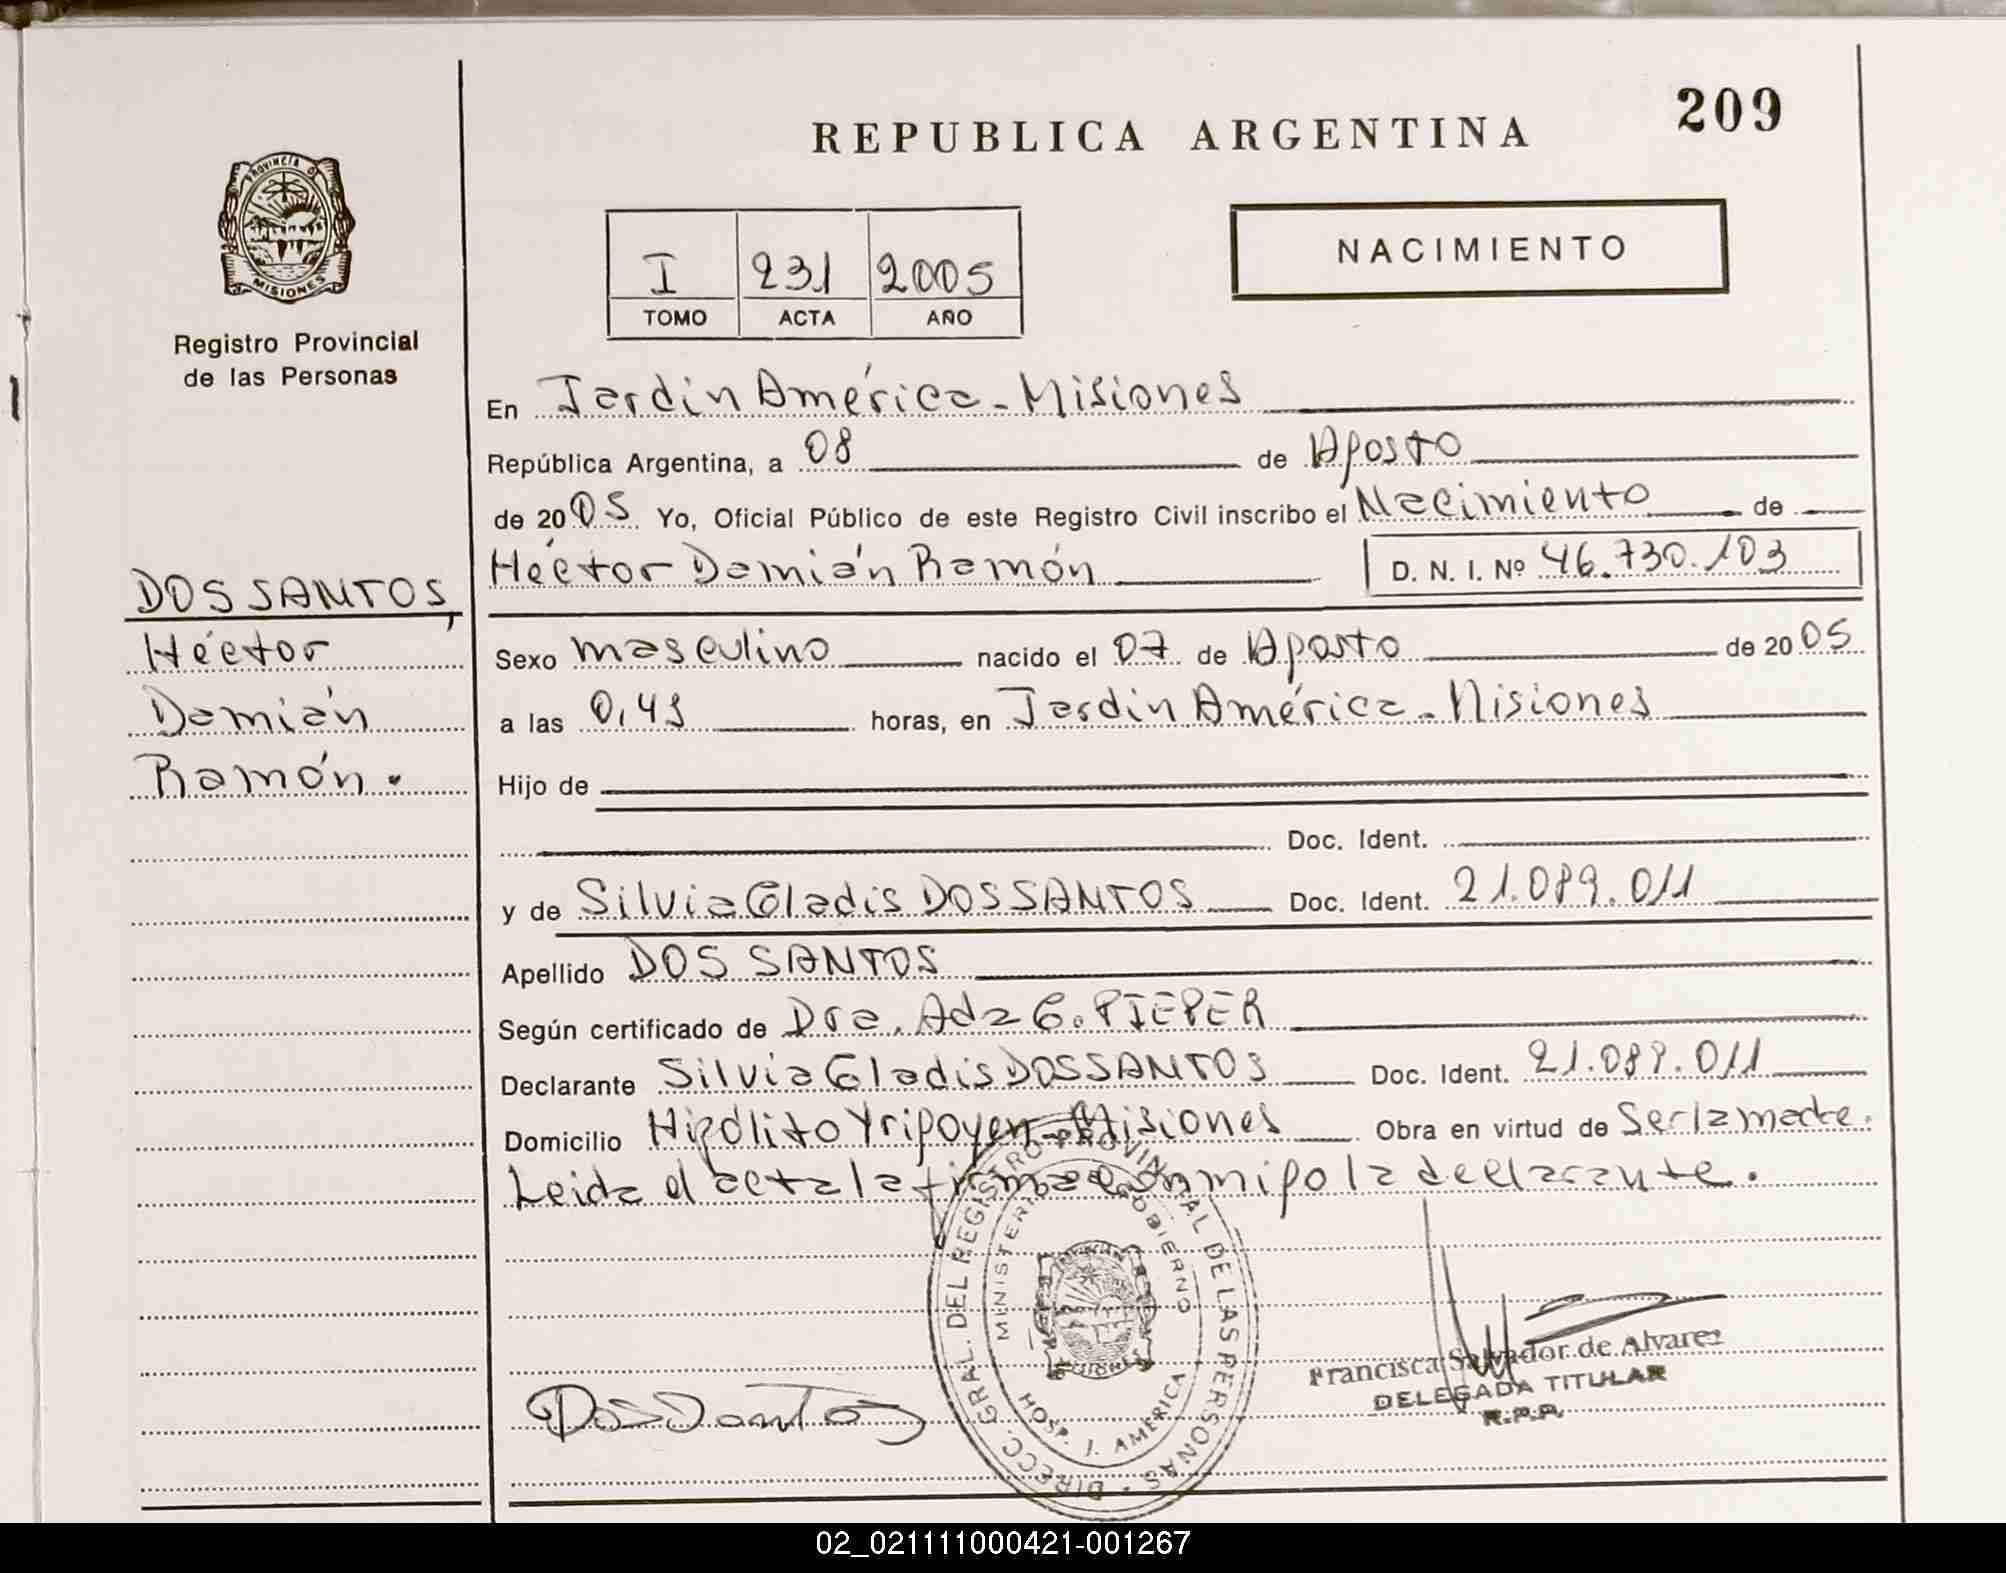 209
REPUBLICA ARGENTINA
PROVINCIA DE
MISIONES
Registro Provincial
de las Personas
NACIMIENTO
I 231 2005
TOMO ACTA AÑO
En Jardín América - Misiones
República Argentina, a 08 de Agosto
de 2005 Yo, Oficial Público de este Registro Civil inscribo el Nacimiento de
Héctor Damián Ramón D. N. I. Nº 46.730.103
DOS SANTOS,
Héctor
Damián
Ramón.
Sexo masculino nacido el 07 de Agosto de 2005
a las 0,45 horas, en Jardín América - Misiones
Hijo de
Doc. Ident.
y de Silvia Gladis DOS SANTOS Doc. Ident. 21.089.011
Apellido DOS SANTOS
Según certificado de Dra. Ada G. PIEPER
Declarante Silvia Gladis DOS SANTOS Doc. Ident. 21.089.011
Domicilio Hipólito Yrigoyen - Misiones Obra en virtud de Ser la madre.
Leida el acta la firma conmigo la declarante.
DIRECC. GRAL. DEL REGISTRO PROVINCIAL DE LAS PERSONAS
MINISTERIO DE GOBIERNO
MISIONES
HOSP. J. AMERICA
Dos Santos
Francisca Salvador de Alvarez
DELEGADA TITULAR
R.P.P.
02_021111000421-001267